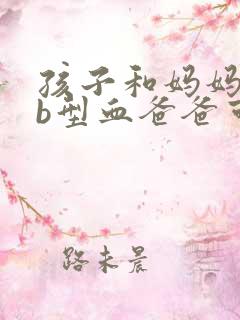 孩子和妈妈
b型血爸爸
路未晨